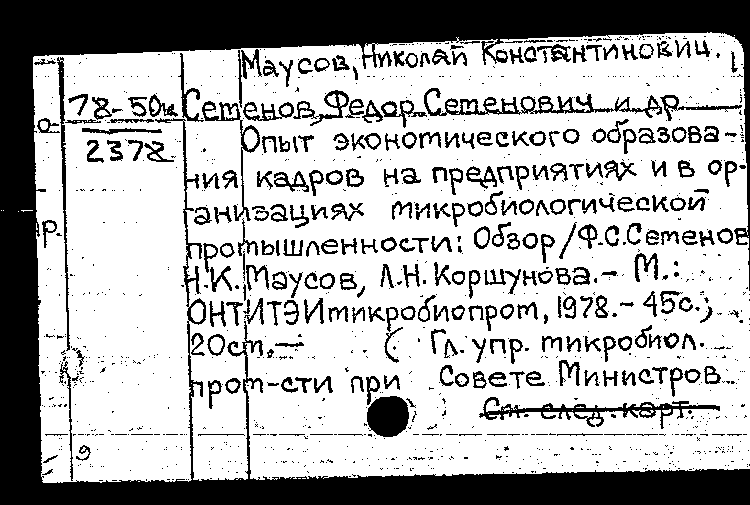 Маусов, Николай Константинович.
78-50ык Семенов, Федор Семенович и др
2378 Опыт экономического образова-
ния кадров на предприятиях и в ор-
ганизациях микробиологической
промышленности: Обзор/Ф.С.Семенов
Н.К.Маусов, Л.Н.Коршунова.- М.:
ОНТИТЭИмикробиопром, 1978.- 45с.;
20см.— ( Гл. упр. микробиол.
пром-сти при Совете Министров
См. след. карт.
9